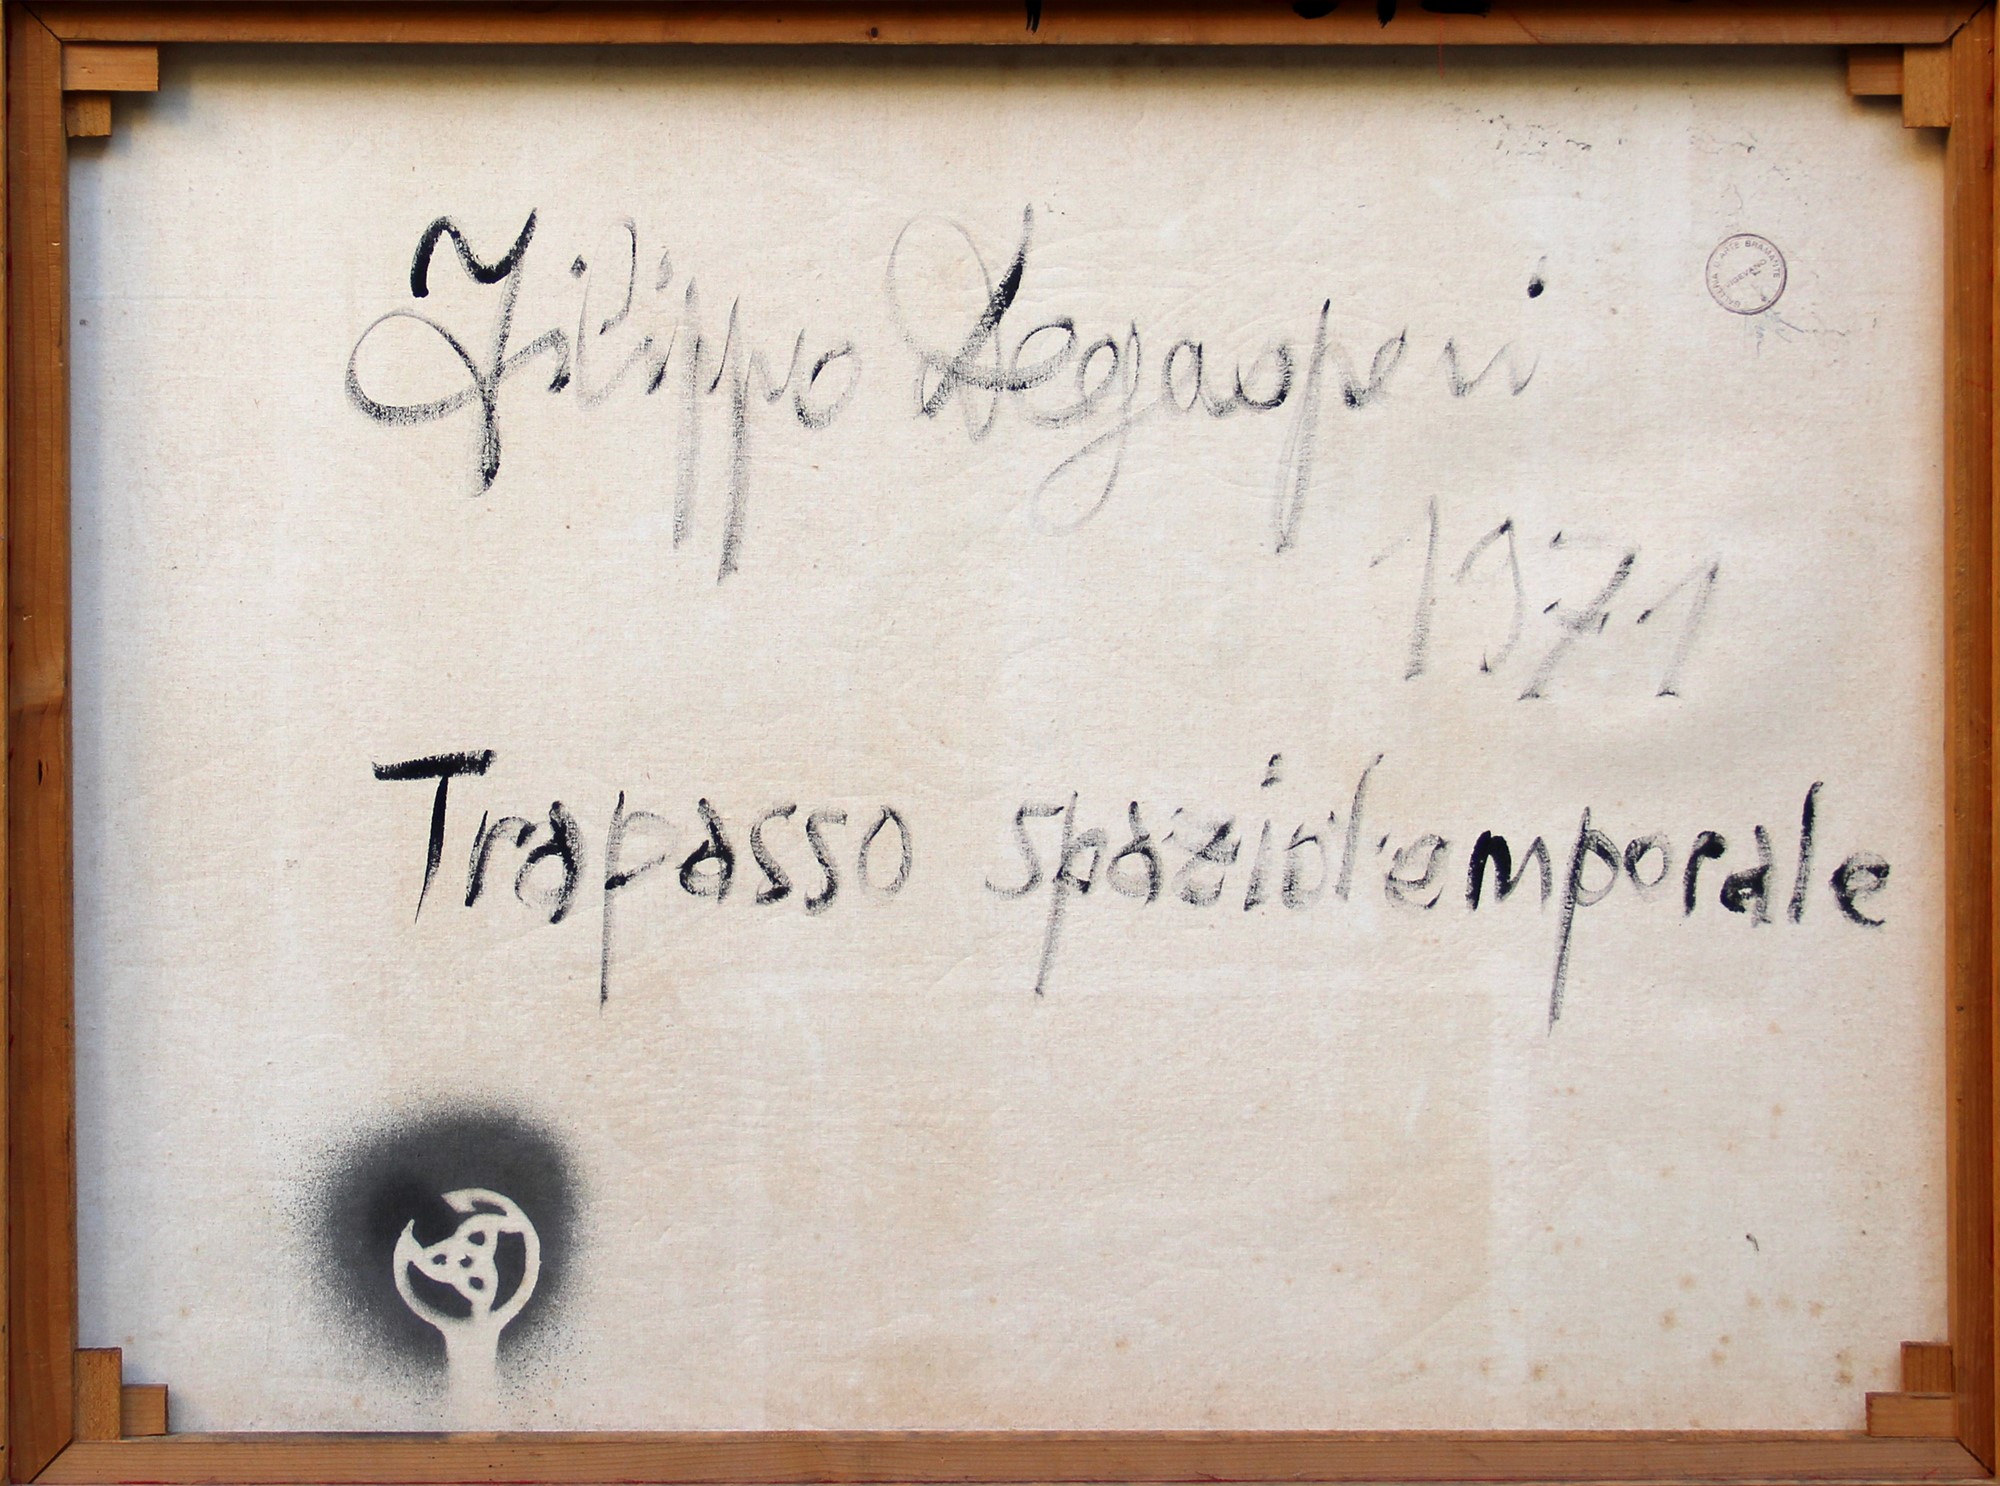 Filippo Degasperi
1971
Trapasso spaziotemporale
GALLERIA D'ARTE BRAMANTE